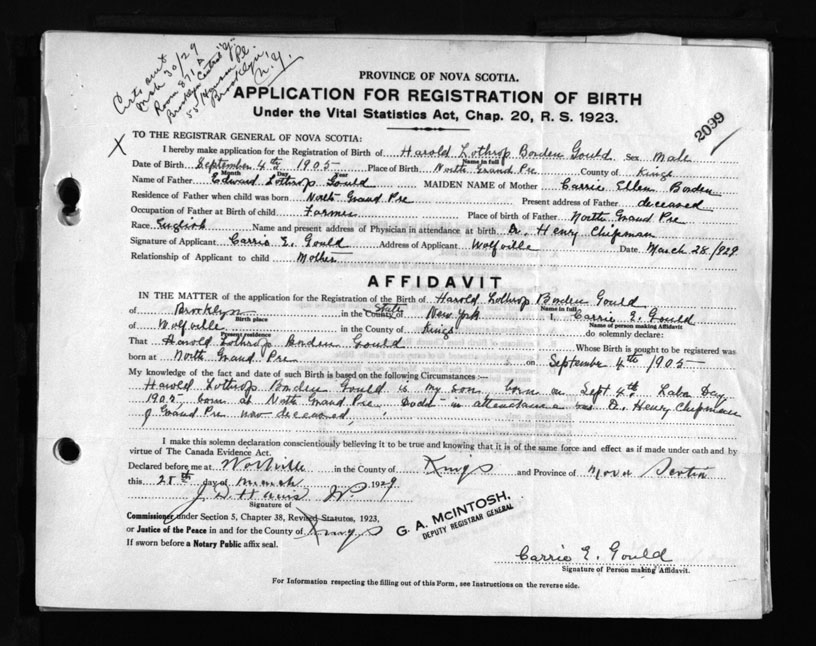 Certs out
Mch 30/29
Room 871 A
Brooklyn Central "Y"
55 Hanson Pl.
Brooklyn,
N.Y.
PROVINCE OF NOVA SCOTIA.
APPLICATION FOR REGISTRATION OF BIRTH
Under the Vital Statistics Act, Chap. 20, R. S. 1923.
2099
X TO THE REGISTRAR GENERAL OF NOVA SCOTIA:
I hereby make application for the Registration of Birth of Harold Lothrop Borden Gould Sex Male
Name in full
Date of Birth September 4th 1905 Place of Birth North Grand Pre County of Kings
Month Day Year
Name of Father Edward Lothrop Gould MAIDEN NAME of Mother Carrie Ellen Borden
Residence of Father when child was born North Grand Pre Present address of Father deceased
Occupation of Father at Birth of child Farmer Place of birth of Father North Grand Pre
Race English Name and present address of Physician in attendance at birth Dr. Henry Chipman
Signature of Applicant Carrie E. Gould Address of Applicant Wolfville Date March 28/1929
Relationship of Applicant to child Mother
AFFIDAVIT
IN THE MATTER of the application for the Registration of the Birth of Harold Lothrop Borden Gould
Name in full
of Brooklyn in the County State of New York I, Carrie E. Gould
Birth place Name of person making Affidavit
of Wolfville in the County of Kings do solemnly declare:
Present residence
That Harold Lothrop Borden Gould Whose Birth is sought to be registered was
born at North Grand Pre on September 4th 1905
My knowledge of the fact and date of such Birth is based on the following Circumstances:—
Harold Lothrop Borden Gould is my son, born on Sept 4th Labor Day
1905 born at North Grand Pre. Doctor in attendance was Dr. Henry Chipman
of Grand Pre now deceased,
I make this solemn declaration conscientiously believing it to be true and knowing that it is of the same force and effect as if made under oath and by
virtue of The Canada Evidence Act.
Declared before me at Wolfville in the County of Kings and Province of Nova Scotia
this 28th day of March 1929
Signature of
Commissioner under Section 5, Chapter 38, Revised Statutes, 1923,
or Justice of the Peace in and for the County of Kings
If sworn before a Notary Public affix seal.
G. A. McINTOSH,
DEPUTY REGISTRAR GENERAL
Carrie E. Gould
Signature of Person making Affidavit.
For Information respecting the filling out of this Form, see Instructions on the reverse side.